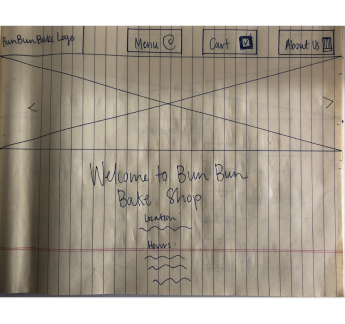 BunBunBake Logo
Menu
Cart
About Us
<
>
Welcome to Bun Bun
Bake Shop
Location
Hours: